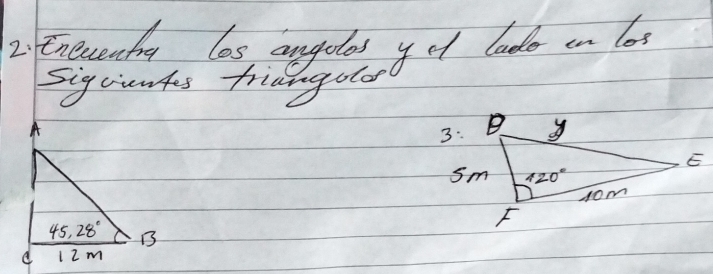 2. Encuentra los ángulos y el lado en los
Siguientes triángulos
A
45,28°
B
C
12 m
3:
D
y
5m
120°
E
10m
F